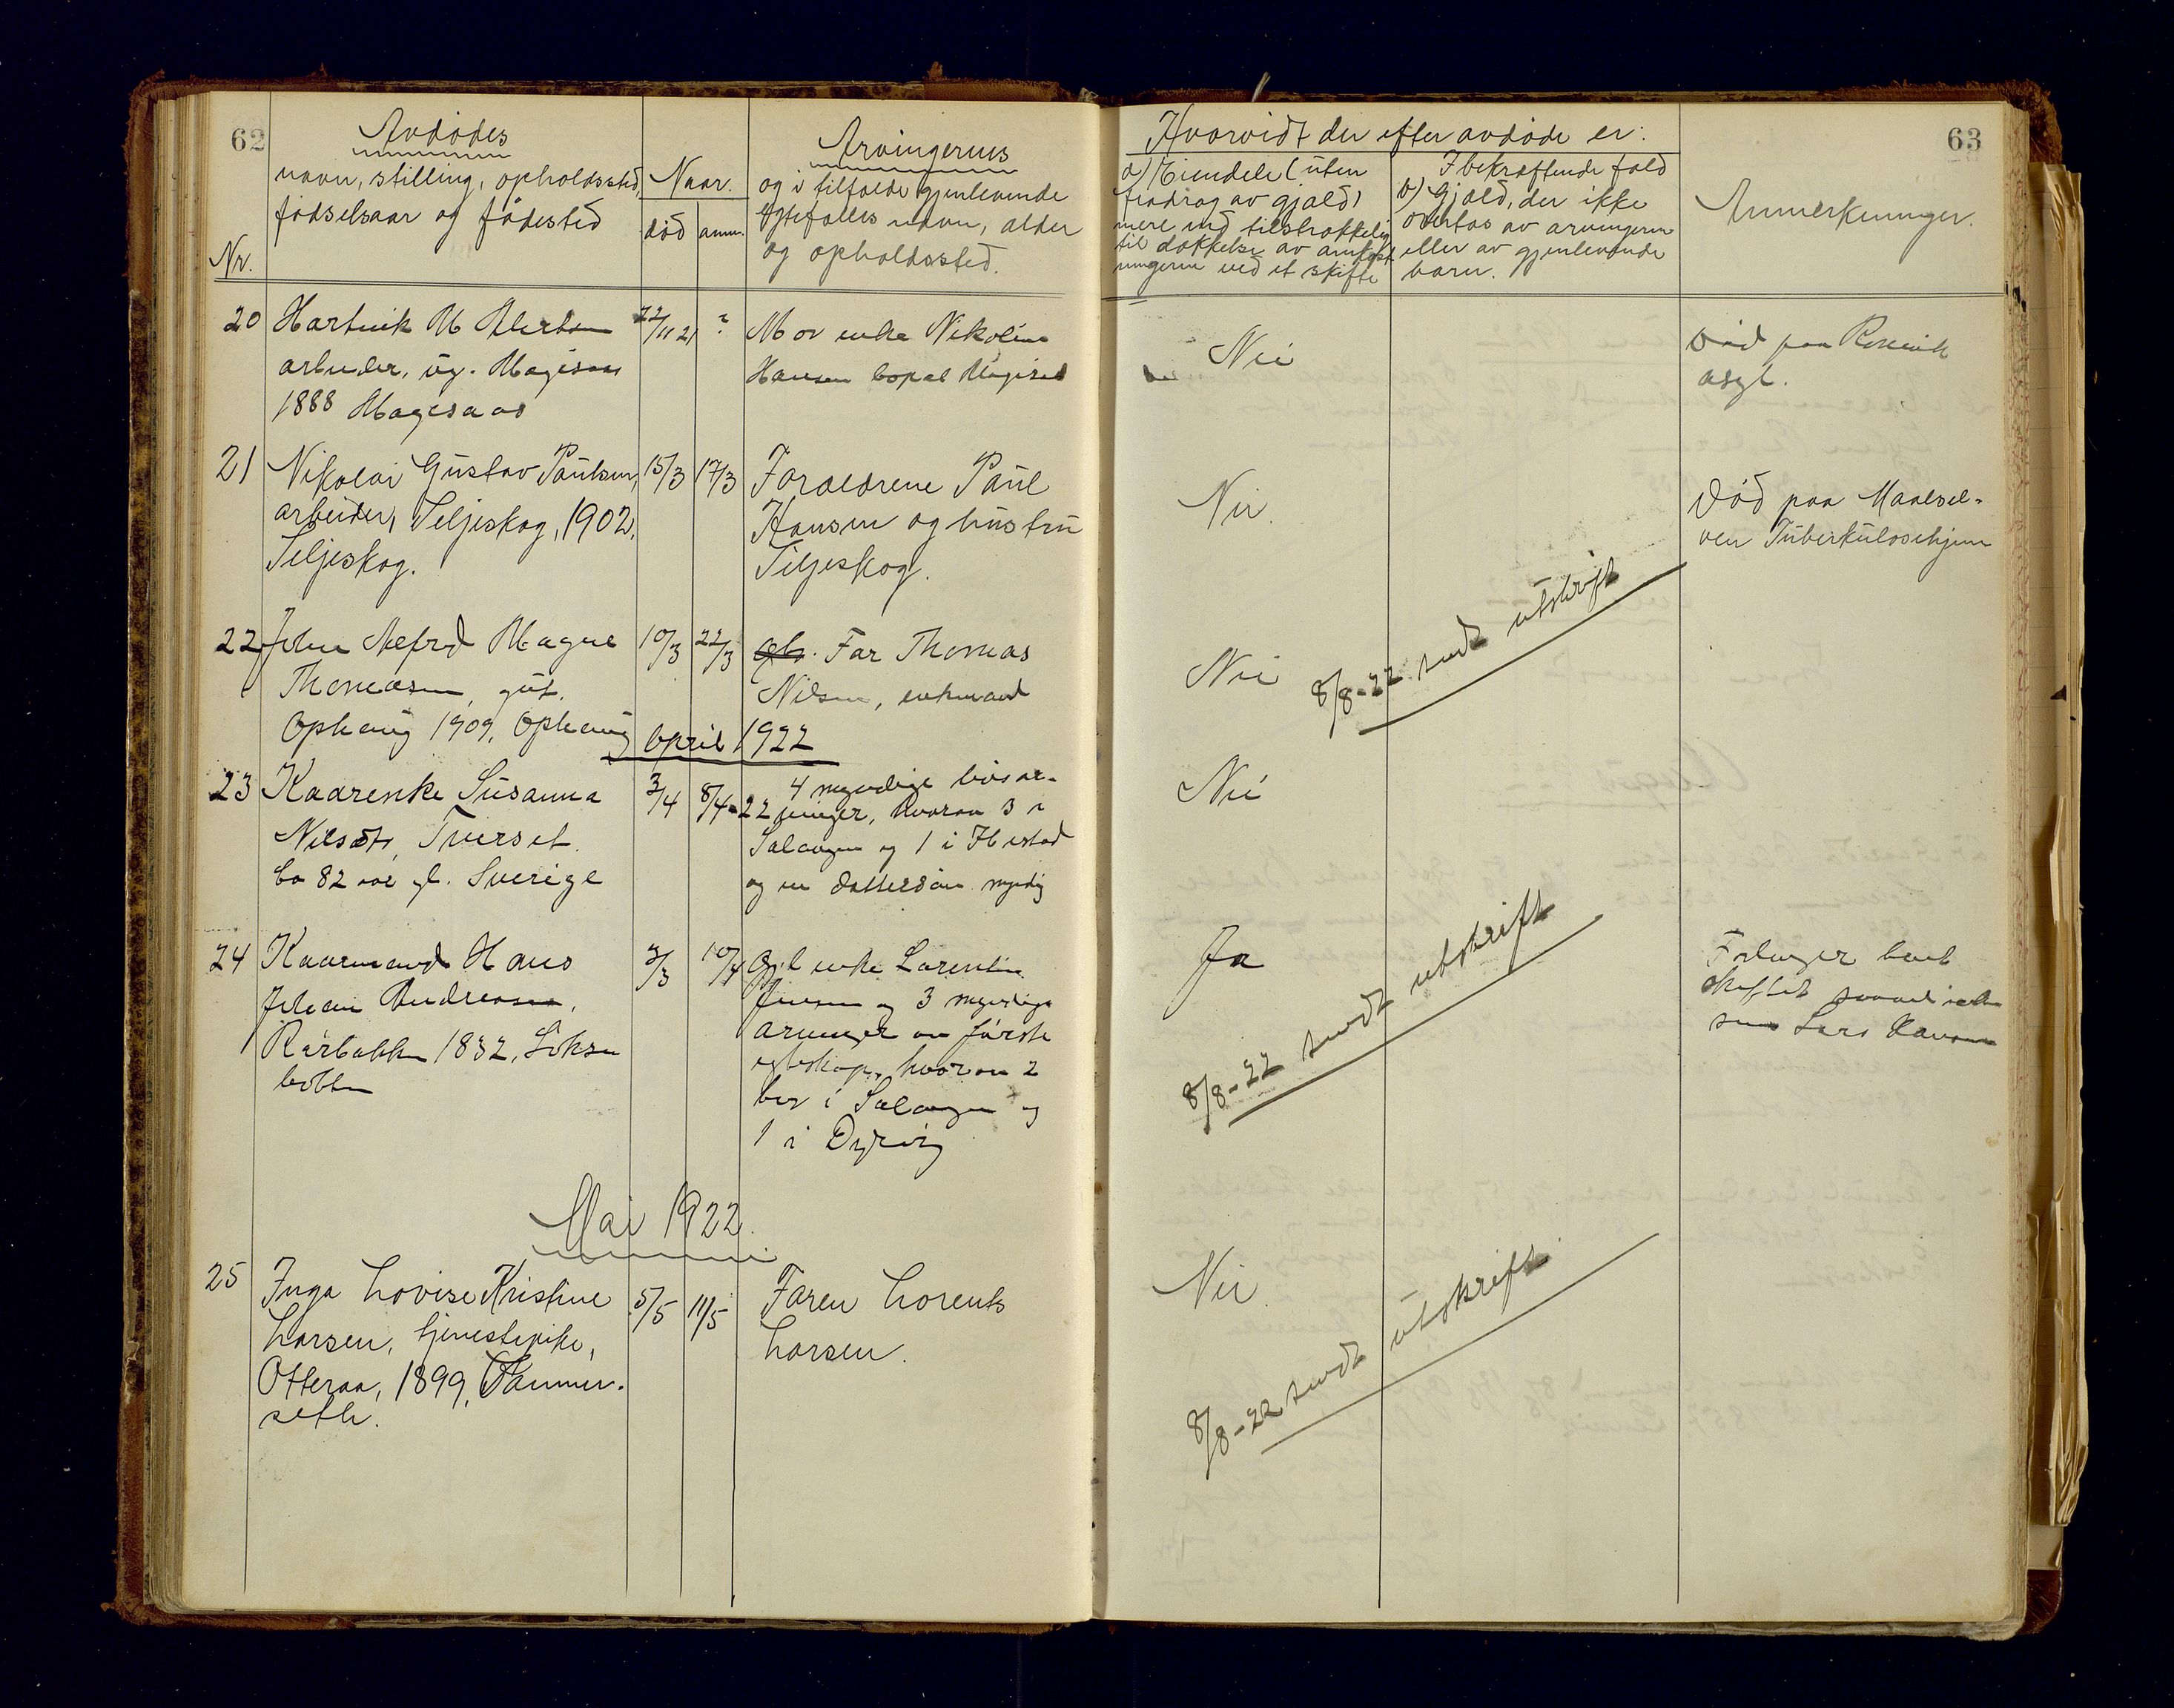 62
Avdødes
navn, stilling, opholdssted,
fødselsaar og fødested
Nr.
Naar.
død anm.
Arvingernes
og i tilfælde gjenlevende
egtefælles navn, alder
og opholdssted.
20 Hartvik M Albertsen 22/11 21 ? Mor enke Nikoline
arbeider, ug. Hansen bopæl
1888
21 Nikolai Gustav Paulsen, 15/3 17/3 Forældrene Paul
arbeider, Seljeskog, 1902. Hansen og hustru
Seljeskog. Seljeskog.
22 Johan Alfred Magne 10/3 22/3 Far Thomas
Thomassen, gut. Nilsen, enkemand
1909,
April 1922
23 Kaarenke Susanna 3/4 8/4-22 4 myndige
Nilsdtr, Tverset. hvorav 3 i
ca 82 aar g. Sverige Salangen og 1 i Ibestad
og en dattersøn myndig
24 Kaarmand Hans 3/3 10/4 Gjl enke Larentine
Johan Andreasen, Jensen og 3 myndige
1832, arvinger av første
egteskap, hvorav 2
bor i Salangen og
1 i Dyrøy
Mai 1922.
25 Inga Lovise Kristine 5/5 11/5 Faren Lorents
Larsen, tjenestepike, Larsen.
Otteraa, 1899,
seth.
63
Hvorvidt der efter avdøde er:
a) Eiendele (uten
fradrag av gjæld)
mere end tilstrækkelig
til dækkelse av omkost
ningerne ved et skifte
I bekræftende fald
b) Gjæld, der ikke
overtas av arvingerne
eller av gjenlevende
barn.
Anmerkninger.
Nei Død paa Rønvik
asyl.
Nei. Død paa Maalsel-
ven Tuberkulosehjem
Nei 8/8-22 sendt utskrift
Nei
Ja 8/8-22 sendt utskrift
Forlanger
skiftet
Lars
Nei. 8/8-22 sendt utskrift